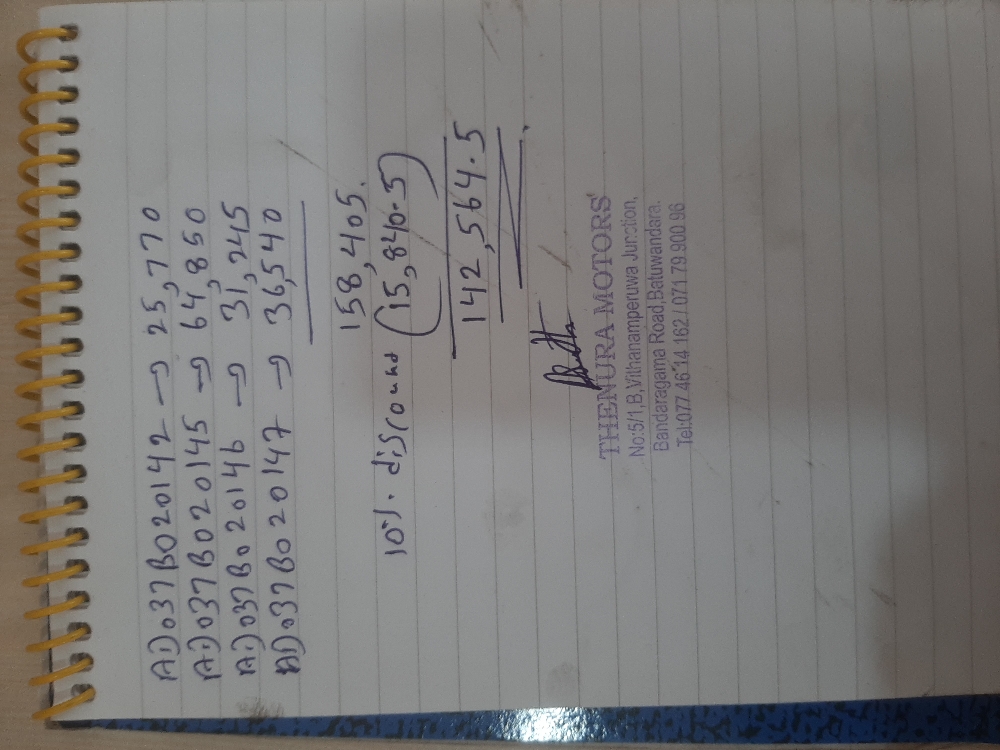 AD037B020142 → 25,770
AD037B020145 → 64,850
AD037B020146 → 31,245
AD037B020147 → 36,540
158,405.
10%. discount (15,840.5)
142,564.5
THENURA MOTORS
No:5/1,B,Vithanamperuwa Junction,
Bandaragama Road,Batuwandara.
Tel:077 46 14 162 / 071 79 900 96